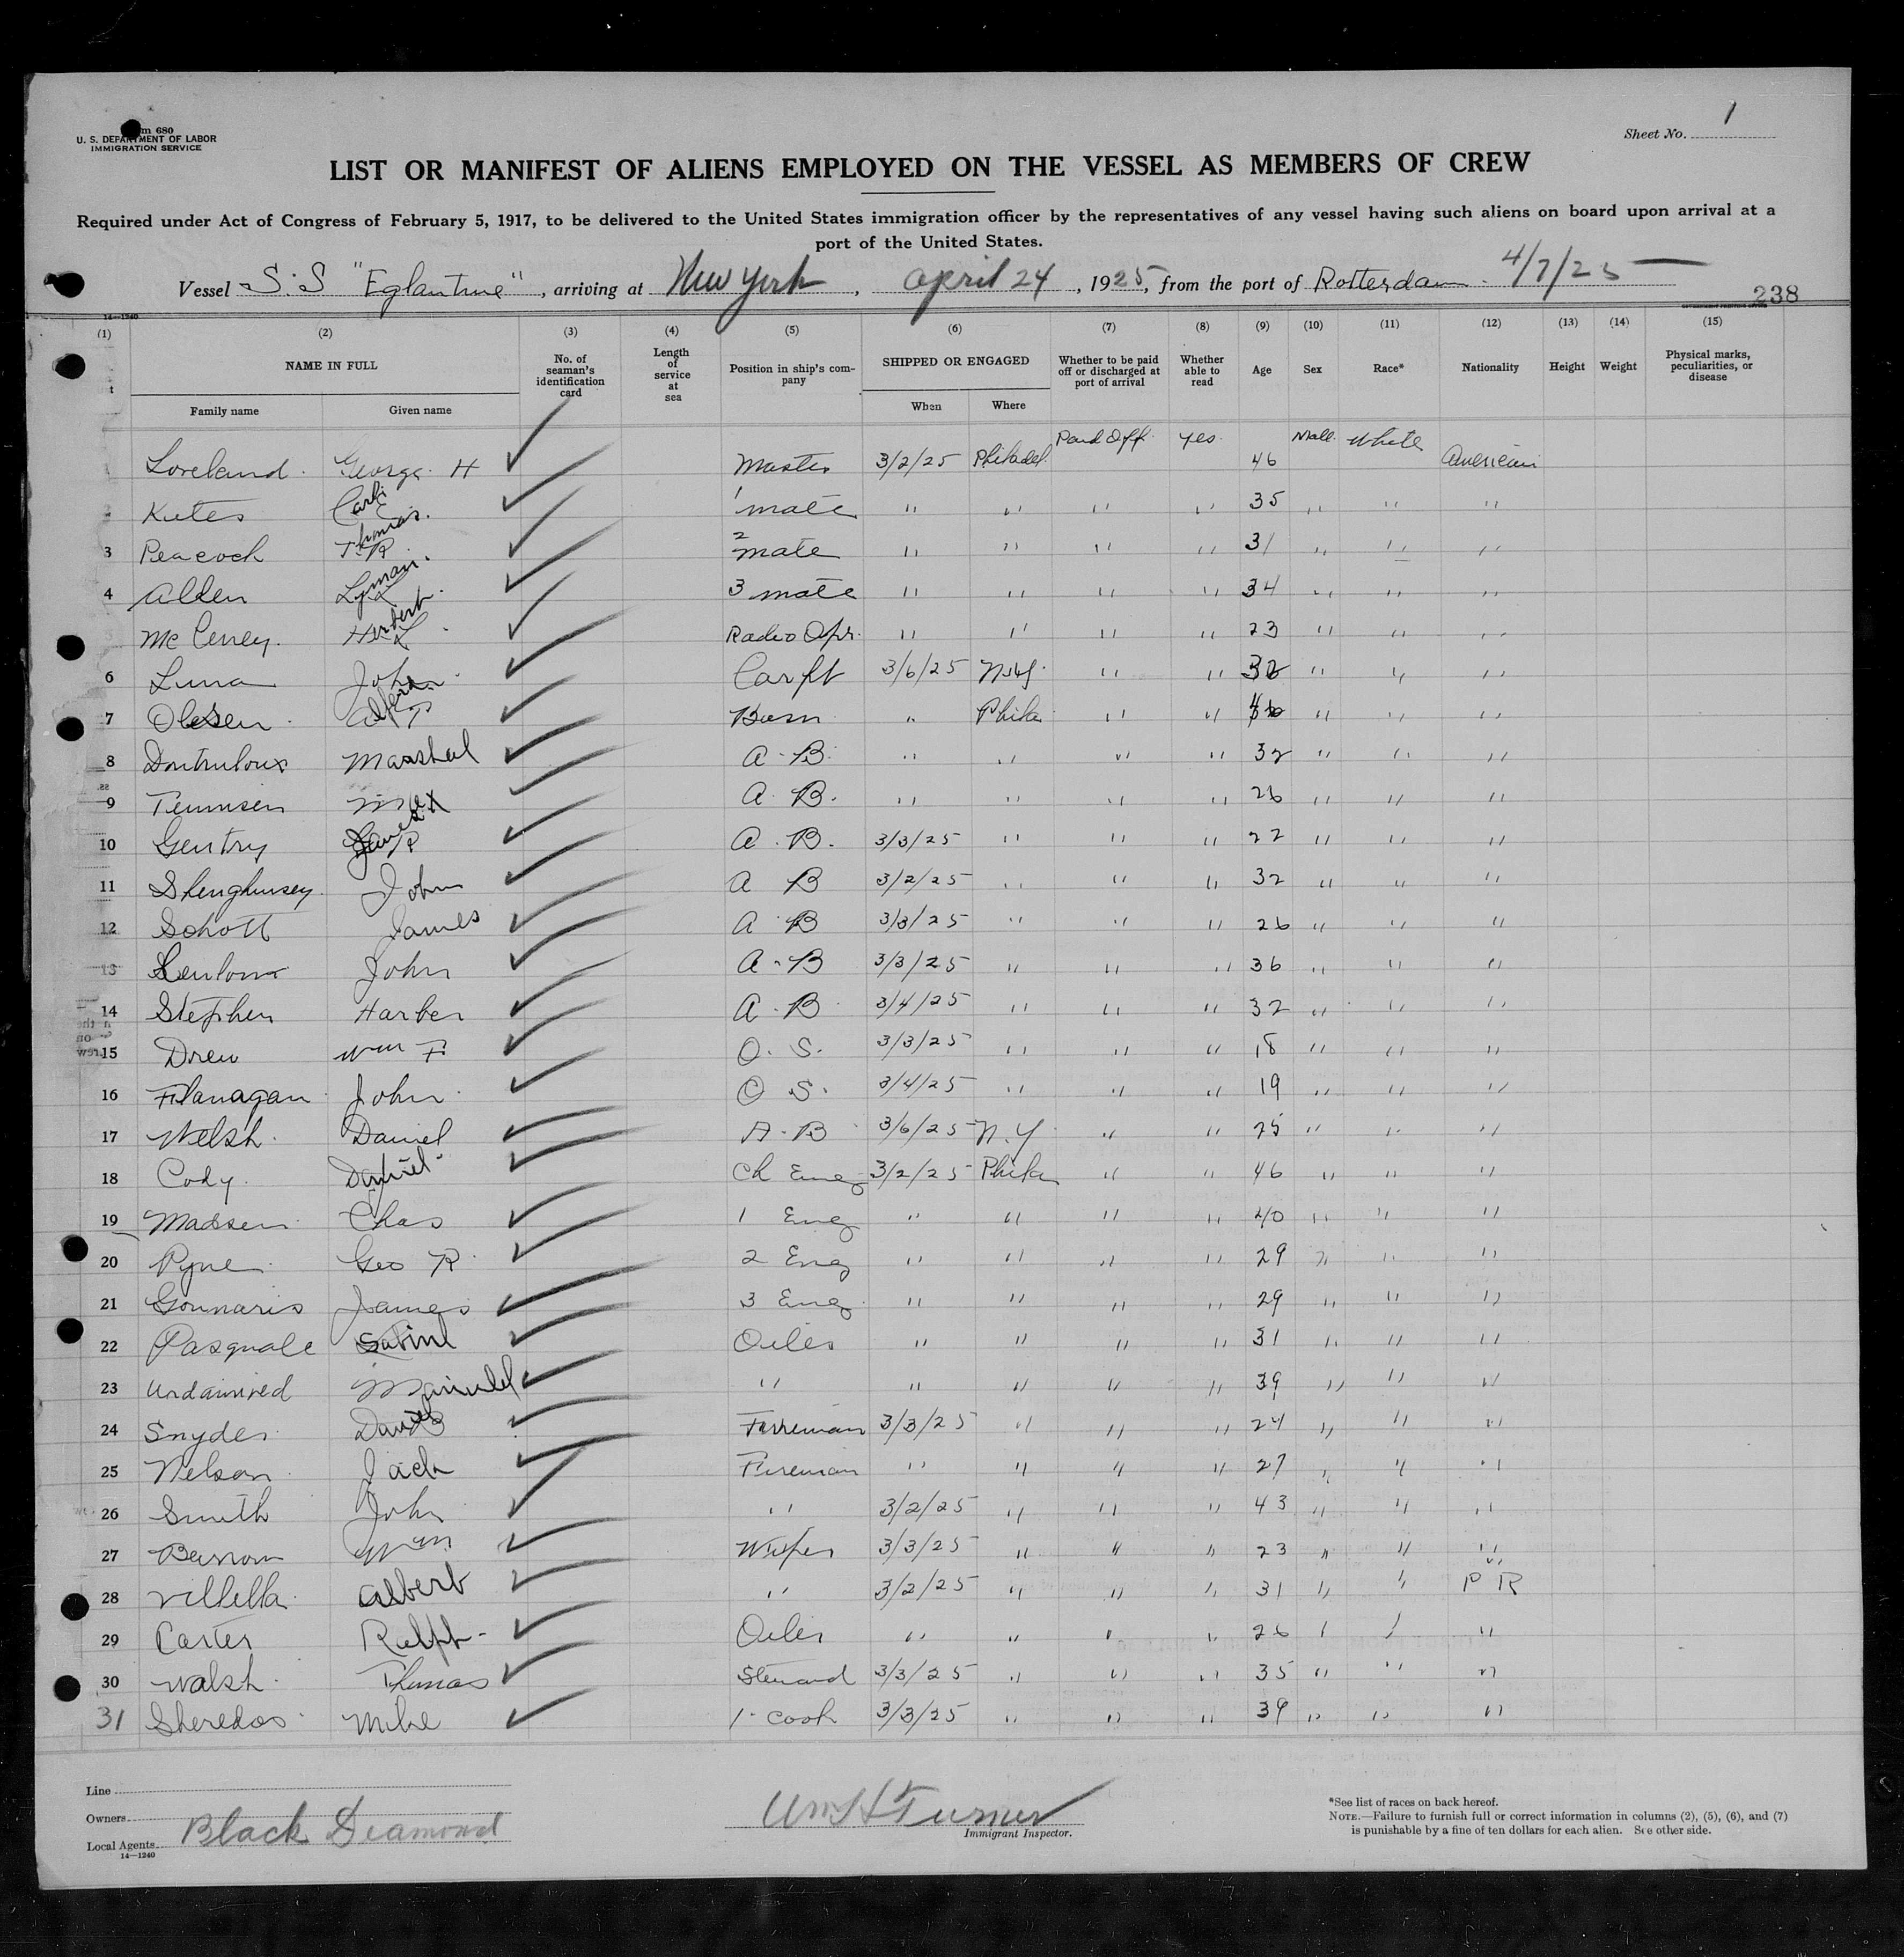 Form 680
U. S. DEPARTMENT OF LABOR
IMMIGRATION SERVICE
Sheet No. 1
LIST OR MANIFEST OF ALIENS EMPLOYED ON THE VESSEL AS MEMBERS OF CREW
Required under Act of Congress of February 5, 1917, to be delivered to the United States immigration officer by the representatives of any vessel having such aliens on board upon arrival at a
port of the United States.
Vessel S.S "Eglantine", arriving at New York, April 24, 1925, from the port of Rotterdam. 4/7/25
238
14—1240
(1) (2) (3) (4) (5) (6) (7) (8) (9) (10) (11) (12) (13) (14) (15)
NAME IN FULL
Family name Given name
No. of seaman's identification card
Length of service at sea
Position in ship's company
SHIPPED OR ENGAGED
When Where
Whether to be paid off or discharged at port of arrival
Whether able to read
Age
Sex
Race*
Nationality
Height
Weight
Physical marks, peculiarities, or disease
Loveland George H Master 3/2/25 Philadel. Paid Off yes 46 Male White American
Kutes Carl E 1 mate " " " " 35 " " "
3 Peacock Thomas R 2 mate " " " " 31 " " "
4 Alden Lyman L 3 mate " " " " 34 " " "
Herbert L Radio Opr. " " " " 23 " " "
6 Luna John Carpt 3/6/25 " " " " "
7 Olesen Bosn " Phila " " " " "
8 Marshal A.B. " " " " 32 " " "
9 Max A.B. " " " " 26 " " "
10 Gentry James R A.B. 3/3/25 " " " 22 " " "
11 John A B 3/2/25 " " " 32 " " "
12 Schott James A B 3/3/25 " " " 26 " " "
13 John A.B 3/3/25 " " " 36 " " "
14 Stephen Harber A.B 3/4/25 " " " 32 " " "
15 Drew Wm F. O.S. 3/3/25 " " " 18 " " "
16 Flanagan John O S. 3/4/25 " " " 19 " " "
17 Welsh Daniel A.B 3/6/25 N.Y " " 25 " " "
18 Cody Daniel Ch Eng 3/2/25 Phila " " 46 " " "
19 Madsen Chas 1 Eng " " " " 40 " " "
20 Pyne Geo R 2 Eng " " " " 29 " " "
21 Gounaris James 3 Eng " " " " 29 " " "
22 Pasquale Sabine Oiler " " " " 31 " " "
23 Manuel " " " " " 39 " " "
24 Snyder David Firreman 3/3/25 " " " 24 " " "
25 Nelson Jack Fireman " " " " 27 " " "
26 Smith John " 3/2/25 " " " 43 " " "
27 Wm Wiper 3/3/25 " " " 23 " " "
28 Villella Albert " 3/2/25 " " " 31 " " P R
29 Carter Ralph Oiler " " " " 26 " " "
30 Walsh Thomas Steward 3/3/25 " " " 35 " " "
31 Sheredos Mike 1 cook 3/3/25 " " " 39 " " "
Line
Owners
Local Agents Black Diamond
14—1240
Wm H Turner
Immigrant Inspector.
*See list of races on back hereof.
NOTE.—Failure to furnish full or correct information in columns (2), (5), (6), and (7)
is punishable by a fine of ten dollars for each alien. See other side.